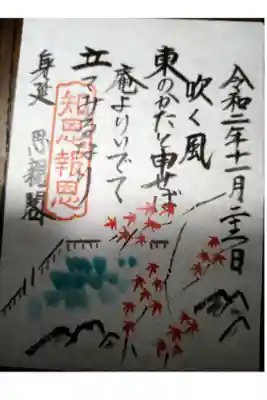 令和二年十一月二十二日
吹く風
東のかたと申せば
庵よりいでて
立てみるなり
身延 思親閣
知恩報恩